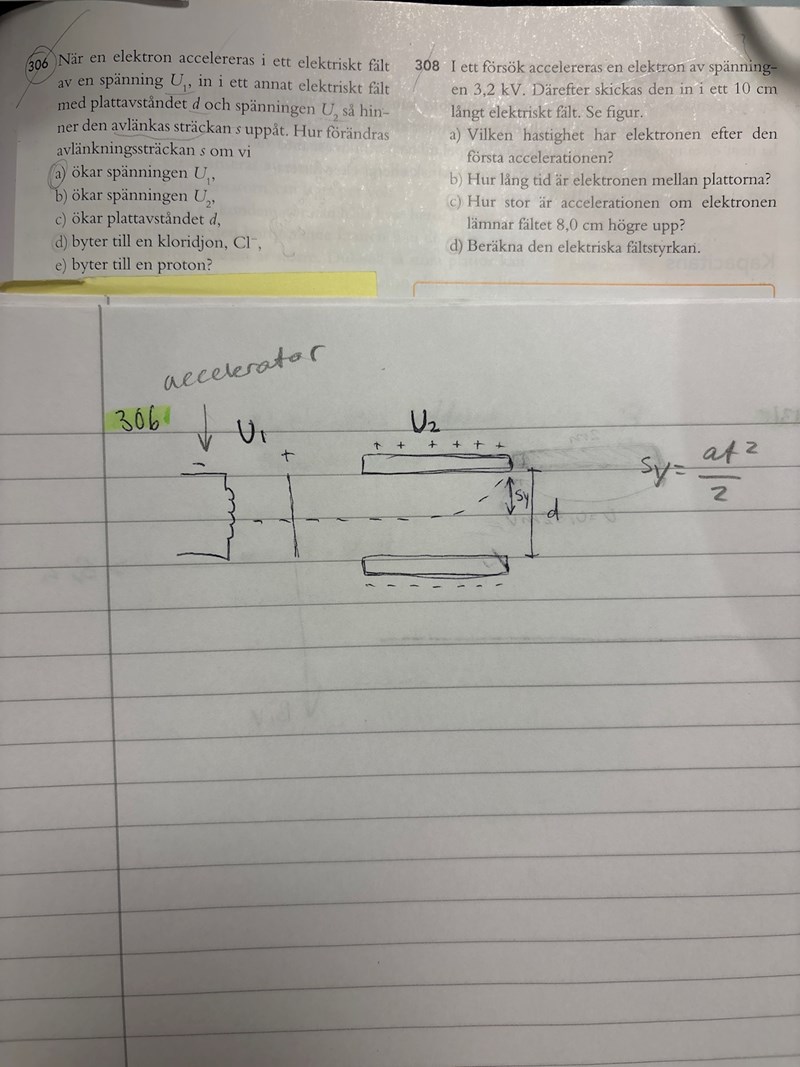 306 När en elektron accelereras i ett elektriskt fält
av en spänning U₁, in i ett annat elektriskt fält
med plattavståndet d och spänningen U₂ så hin-
ner den avlänkas sträckan s uppåt. Hur förändras
avlänkningssträckan s om vi
a) ökar spänningen U₁,
b) ökar spänningen U₂,
c) ökar plattavståndet d,
d) byter till en kloridjon, Cl⁻,
e) byter till en proton?
308 I ett försök accelereras en elektron av spänning-
en 3,2 kV. Därefter skickas den in i ett 10 cm
långt elektriskt fält. Se figur.
a) Vilken hastighet har elektronen efter den
första accelerationen?
b) Hur lång tid är elektronen mellan plattorna?
c) Hur stor är accelerationen om elektronen
lämnar fältet 8,0 cm högre upp?
d) Beräkna den elektriska fältstyrkan.
accelerator
306 U₁ U₂
+ + + + + +
- +
Sy d
- - - - - -
Sy = at²/2